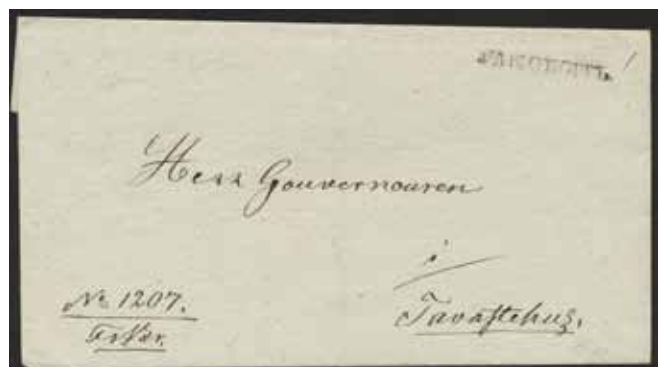 Herr Gouverneuren
i
Tavastehus.
No 1207.